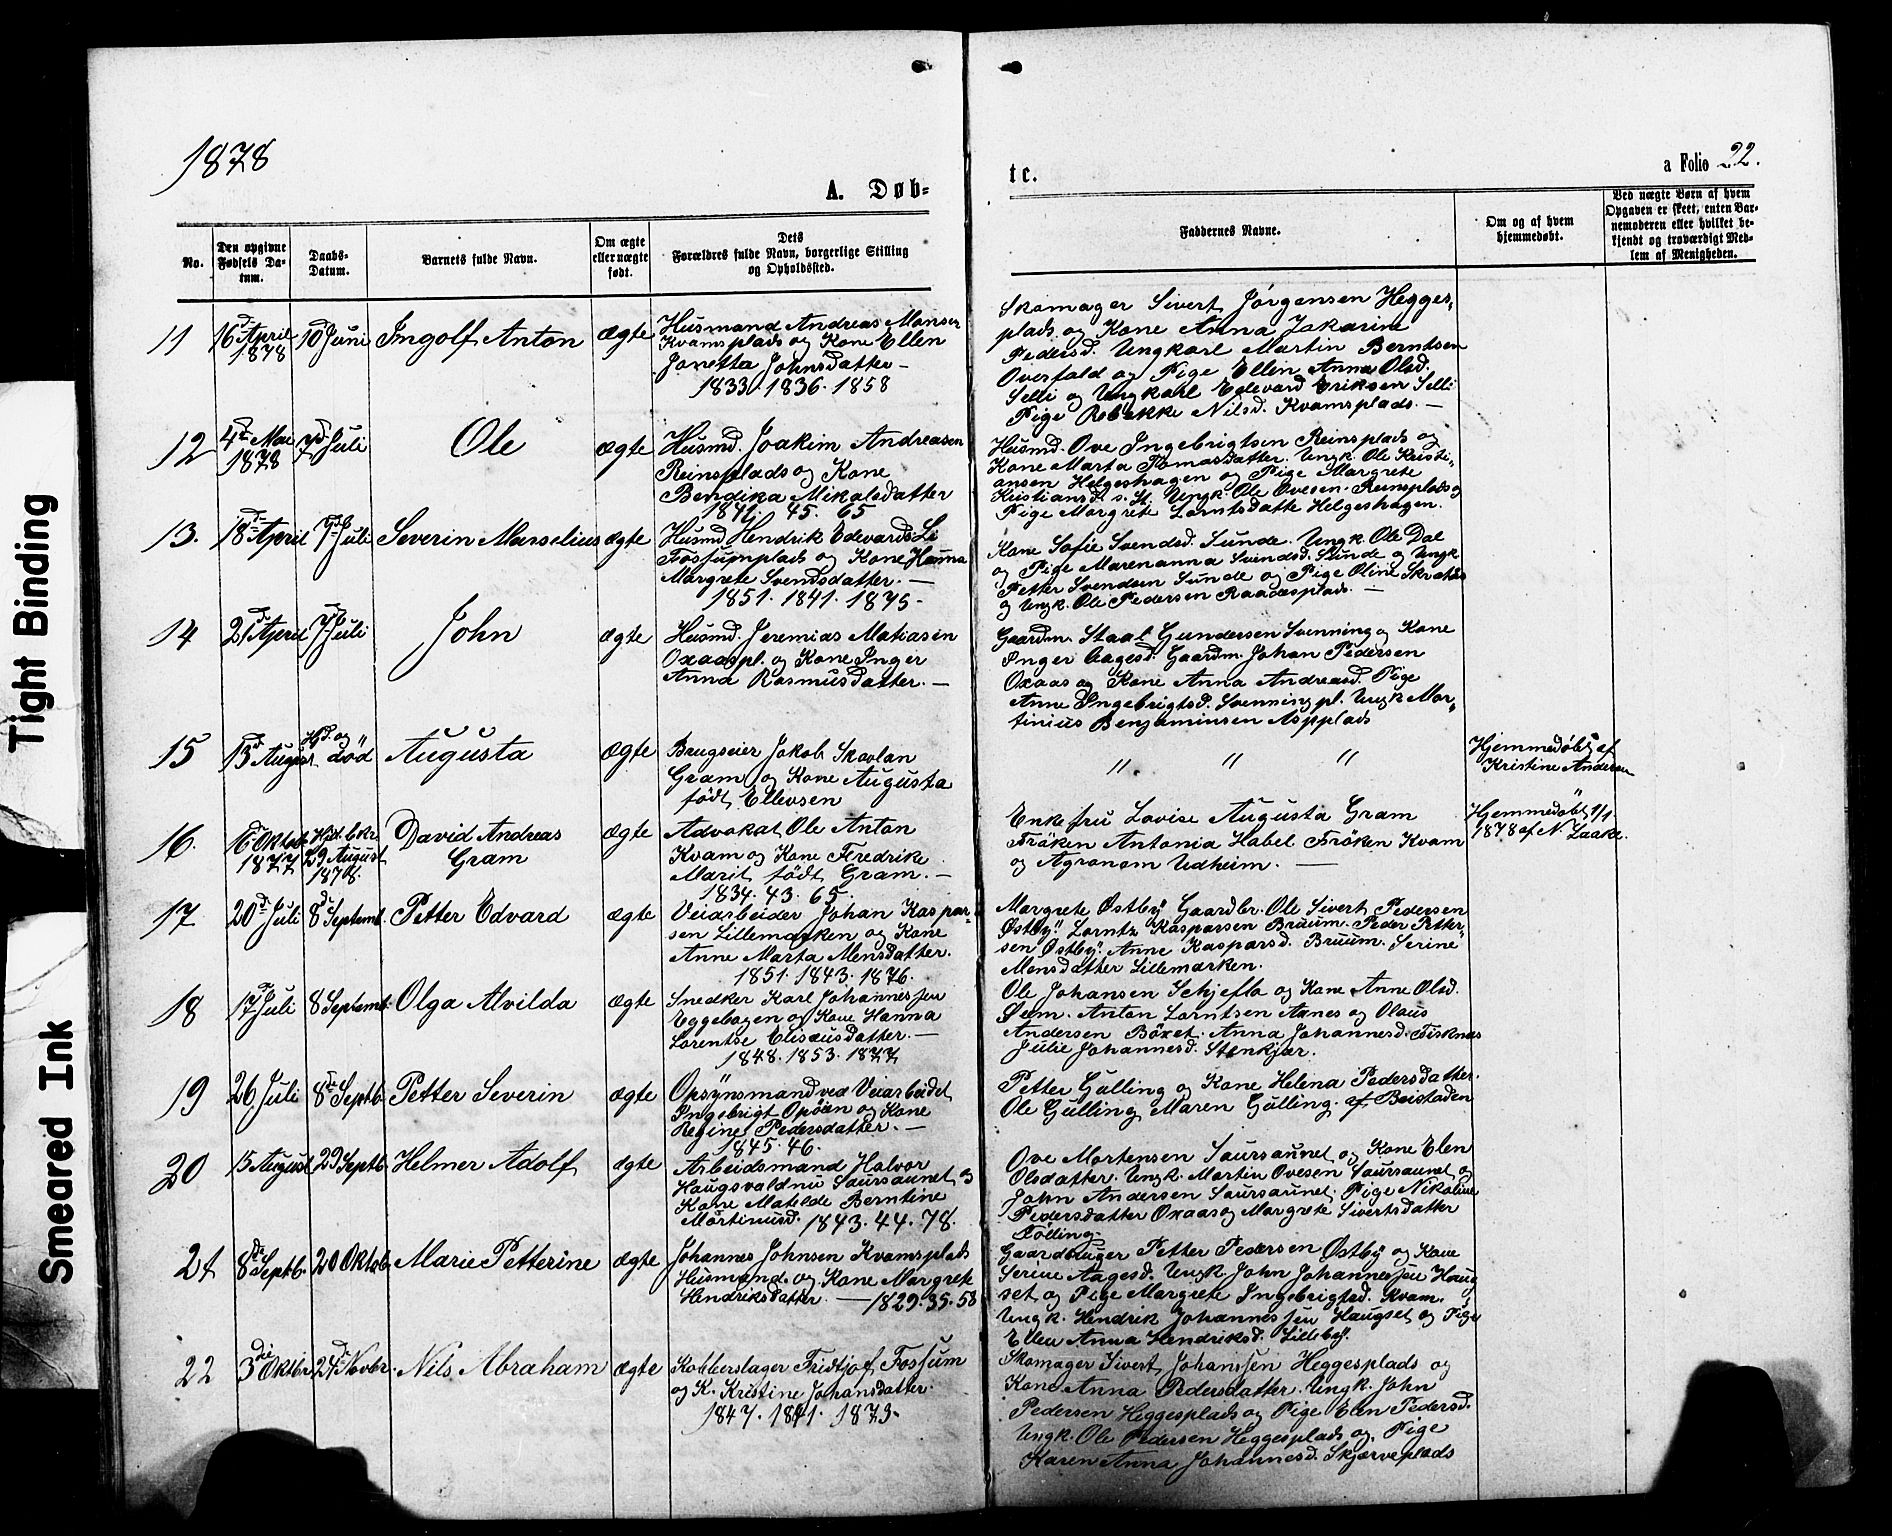 Tight Binding
Smeared Ink
1878
A. Døb=
tc.
a Folio 22.
No.
Den opgivne
Fødsels Da-
tum.
Daabs-
Datum.
Barnets fulde Navn.
Om ægte
eller uægte
født.
Dets
Forældres fulde Navn, borgerlige Stilling
og Opholdssted.
Faddernes Navne.
Om og af hvem
hjemmedøbt.
Ved uægte Børn af hvem
Opgaven er skeet, enten Bar-
nemoderen eller hvilket be-
kjendt og troværdigt Med-
lem af Menigheden.
11
16d April
1878
10d Juni
Ingolf Anton
ægte
Husmand Andreas Monsen
Kvamsplads og Kone Ellen
Jonetta Johnsdatter –
1833. 1836. 1858
Skomager Sivert Jørgensen Hegges-
plads og Kone Anna Zakarine
Pedersd. Ungkarl Martin Berntsen
Overfald og Pige Ellin Anna Olsd.
Selli og Ungkarl Edevard Eriksen Selli
Pige Rebekke Nilsd. Kvamsplads. –
12
4d Mai
1878
7d Juli
Ole
ægte
Husmd. Joakim Andreasen
Reinsplads og Kone
Bendika Mikalsdatter
1841. 45. 65
Husmd. Ove Ingebrigtsen Reinsplads og
Kone Marta Tomasdatter. Ungk. Ole Kristi-
ansen Helgeshagen og Pige Margrete
Kristiansd. s. St. Ungk. Ole Ovesen Reinsplads og
Pige Margrete Lorntsdatte Helgeshagen.
13.
18d April
7d Juli
Severin Marselius
ægte
Husmd Hendrik Edevards Li
Fossumplads og Kone Hanna
Margrete Svendsdatter. –
1851. 1841. 1875.
Kone Sofie Svendsd. Sunde. Ungk Ole Dal
og Pige Marenanna Svendsd. Sunde og Ungk
Petter Svendsen Sunde og Pige Oline
og Ungk. Ole Pedersen Raadesplads. –
14
21d April
7d Juli
John
ægte
Husmd. Jeremias Matiasen
Oxaaspl. og Kone Inger
Anna Rasmusdatter. –
Gaardm. Staal Gundersen Svenning og Kone
Inger Aagesd. Gaardm. Johan Pedersen
Oxaas og Kone Anna Andreasd. Pige
Anne Ingebrigtsd. Svenning pl. Ungk Mar-
tinius Benjaminsen Aspplads
15
13d August
Hjd. og
död
Augusta
ægte
Brugseier Jakob Skavlan
Gram og Kone Augusta
født Ellevsen
" " "
Hjemmedøbt af
Kristine Andersen
16.
16d Oktob
1877
Hjd. bkr.
29 August
1878.
David Andreas
Gram
ægte
Advokat Ole Anton
Kvam og Kone Fredrike
Marit født Gram. –
1834. 43. 65.
Enkefru Lovise Augusta Gram
Frøken Antonia Habel Frøken Kvam
og Agronom Udheim. –
Hjemmedöbt 1/1
1878 af N. Laake.
17
20d Juli
8d Septemb.
Petter Edvard
ægte
Veiarbeider Johan Kaspar-
sen Lillemarken og Kone
Anne Marta Monsdatter.
1851. 1843. 1876.
Margrete Østby Gaardbr. Ole Sivert Pedersen
Østby. Lorntz Kasparsen Bruum. Peder Petter-
sen Østby. Anne Kaspersd. Bruum. Serine
Monsdatter Lillemarken.
18
17d Juli
8 Septemb.
Olga Alvilda
ægte
Snedker Karl Johannessen
Eggebogen og Kone Hanna
Lorentse Elisæusdatter. –
1848. 1853. 1877
Ole Johansen Schjefla og Kone Anne Olsd.
Øem. Anton Lorntsen Axnes og Olaus
Andersen Böxet. Anna Johannesd. Fisknes
Julie Johannesd. Stenkjær.
19
26 Juli
8de Septb.
Petter Severin
ægte
Opsynsmand ved Veiarbeidet
Ingebrigt Opöien og Kone
Regine Pedersdatter. –
1845. 46.
Petter Gulling og Kone Helena Pedersdatter.
Ole Gulling Maren Gulling. af Beistaden
20
15 August
29 Septb.
Helmer Adolf
ægte
Arbeidsmand Halvor
Haugsvald nu Saursaunet og
Kone Matilde Berntine
Martinusd. 1843. 44. 78.
Ove Mortensen Saursaunet og Kone Elen
Olsdatter. Ungk. Martin Ovesen Saursaunet og
John Andersen Saursaunet. Pige Nikoline
Pedersdatter Oxaas og Margrete Sivertsdatter
Fölling.
21
8de Septb.
20 Oktob.
Marie Petterine
ægte
Johannes Johnsen Kvamsplads
Husmand og Kone Margrete
Hendriksdatter. – 1829. 35. 58
Gaardbruger Petter Pedersen Østby og Kone
Serine Aagesd. Ungk. John Johannessen Haug-
set og Pige Margrete Ingebrigtsd. Kvam.
Ungk. Hendrik Johannessen Haugset og Pige
Ellen Anna Hendriksd. Lilleby.
22
3die Oktbr.
24d Novbr.
Nils Abraham
ægte
Kobberslager Fridtjof Fossum
og K. Kristine Johansdatter.
1847. 1841. 1873.
Skomager Sivert Johanssen Heggesplads og
Kone Anna Pedersdatter. Ungk. John
Pedersen Heggesplads og Pige Elen Pedersd.
Ungk. Ole Pedersen Heggesplads og Pige
Karen Anna Johannesd. Skjærveplads